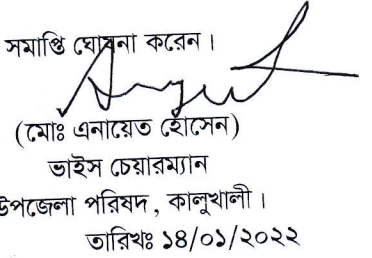 সমাপ্তি ঘোষনা করেন।
(মোঃ এনায়েত হোসেন)
ভাইস চেয়ারম্যান
উপজেলা পরিষদ, কালুখালী।
তারিখঃ ১৪/০১/২০২২